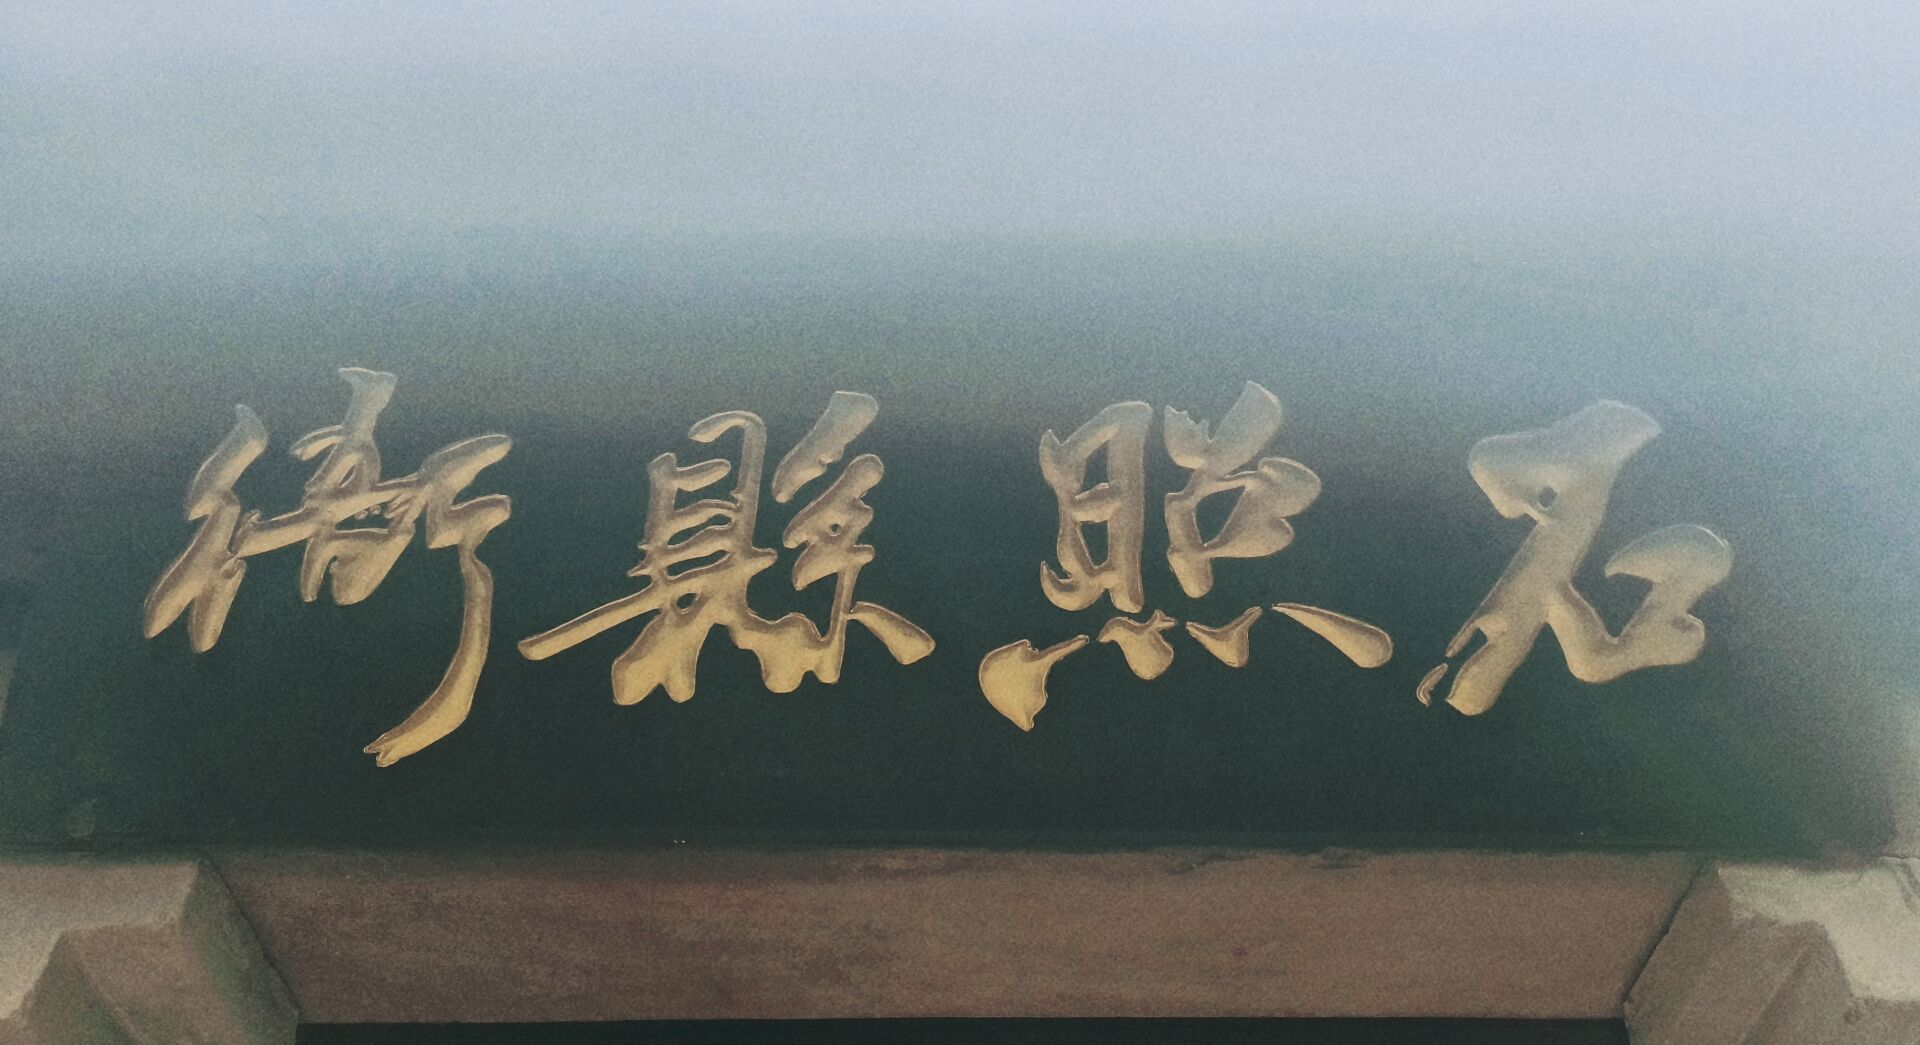 石照縣衙